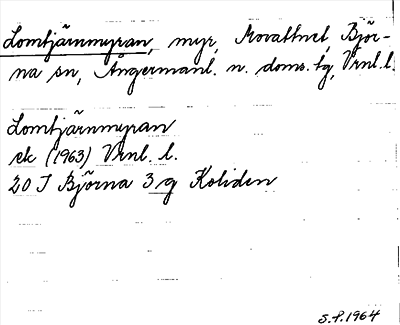 Lomtjärnmyran, myr, Movattnet, Björ-
na sn, Ångermanl. n. doms. tg, Vrnl. l.
Lomtjärnmyran
ek (1963) Vrnl. l.
20 J Björna 3 g Koliden
S.P. 1964